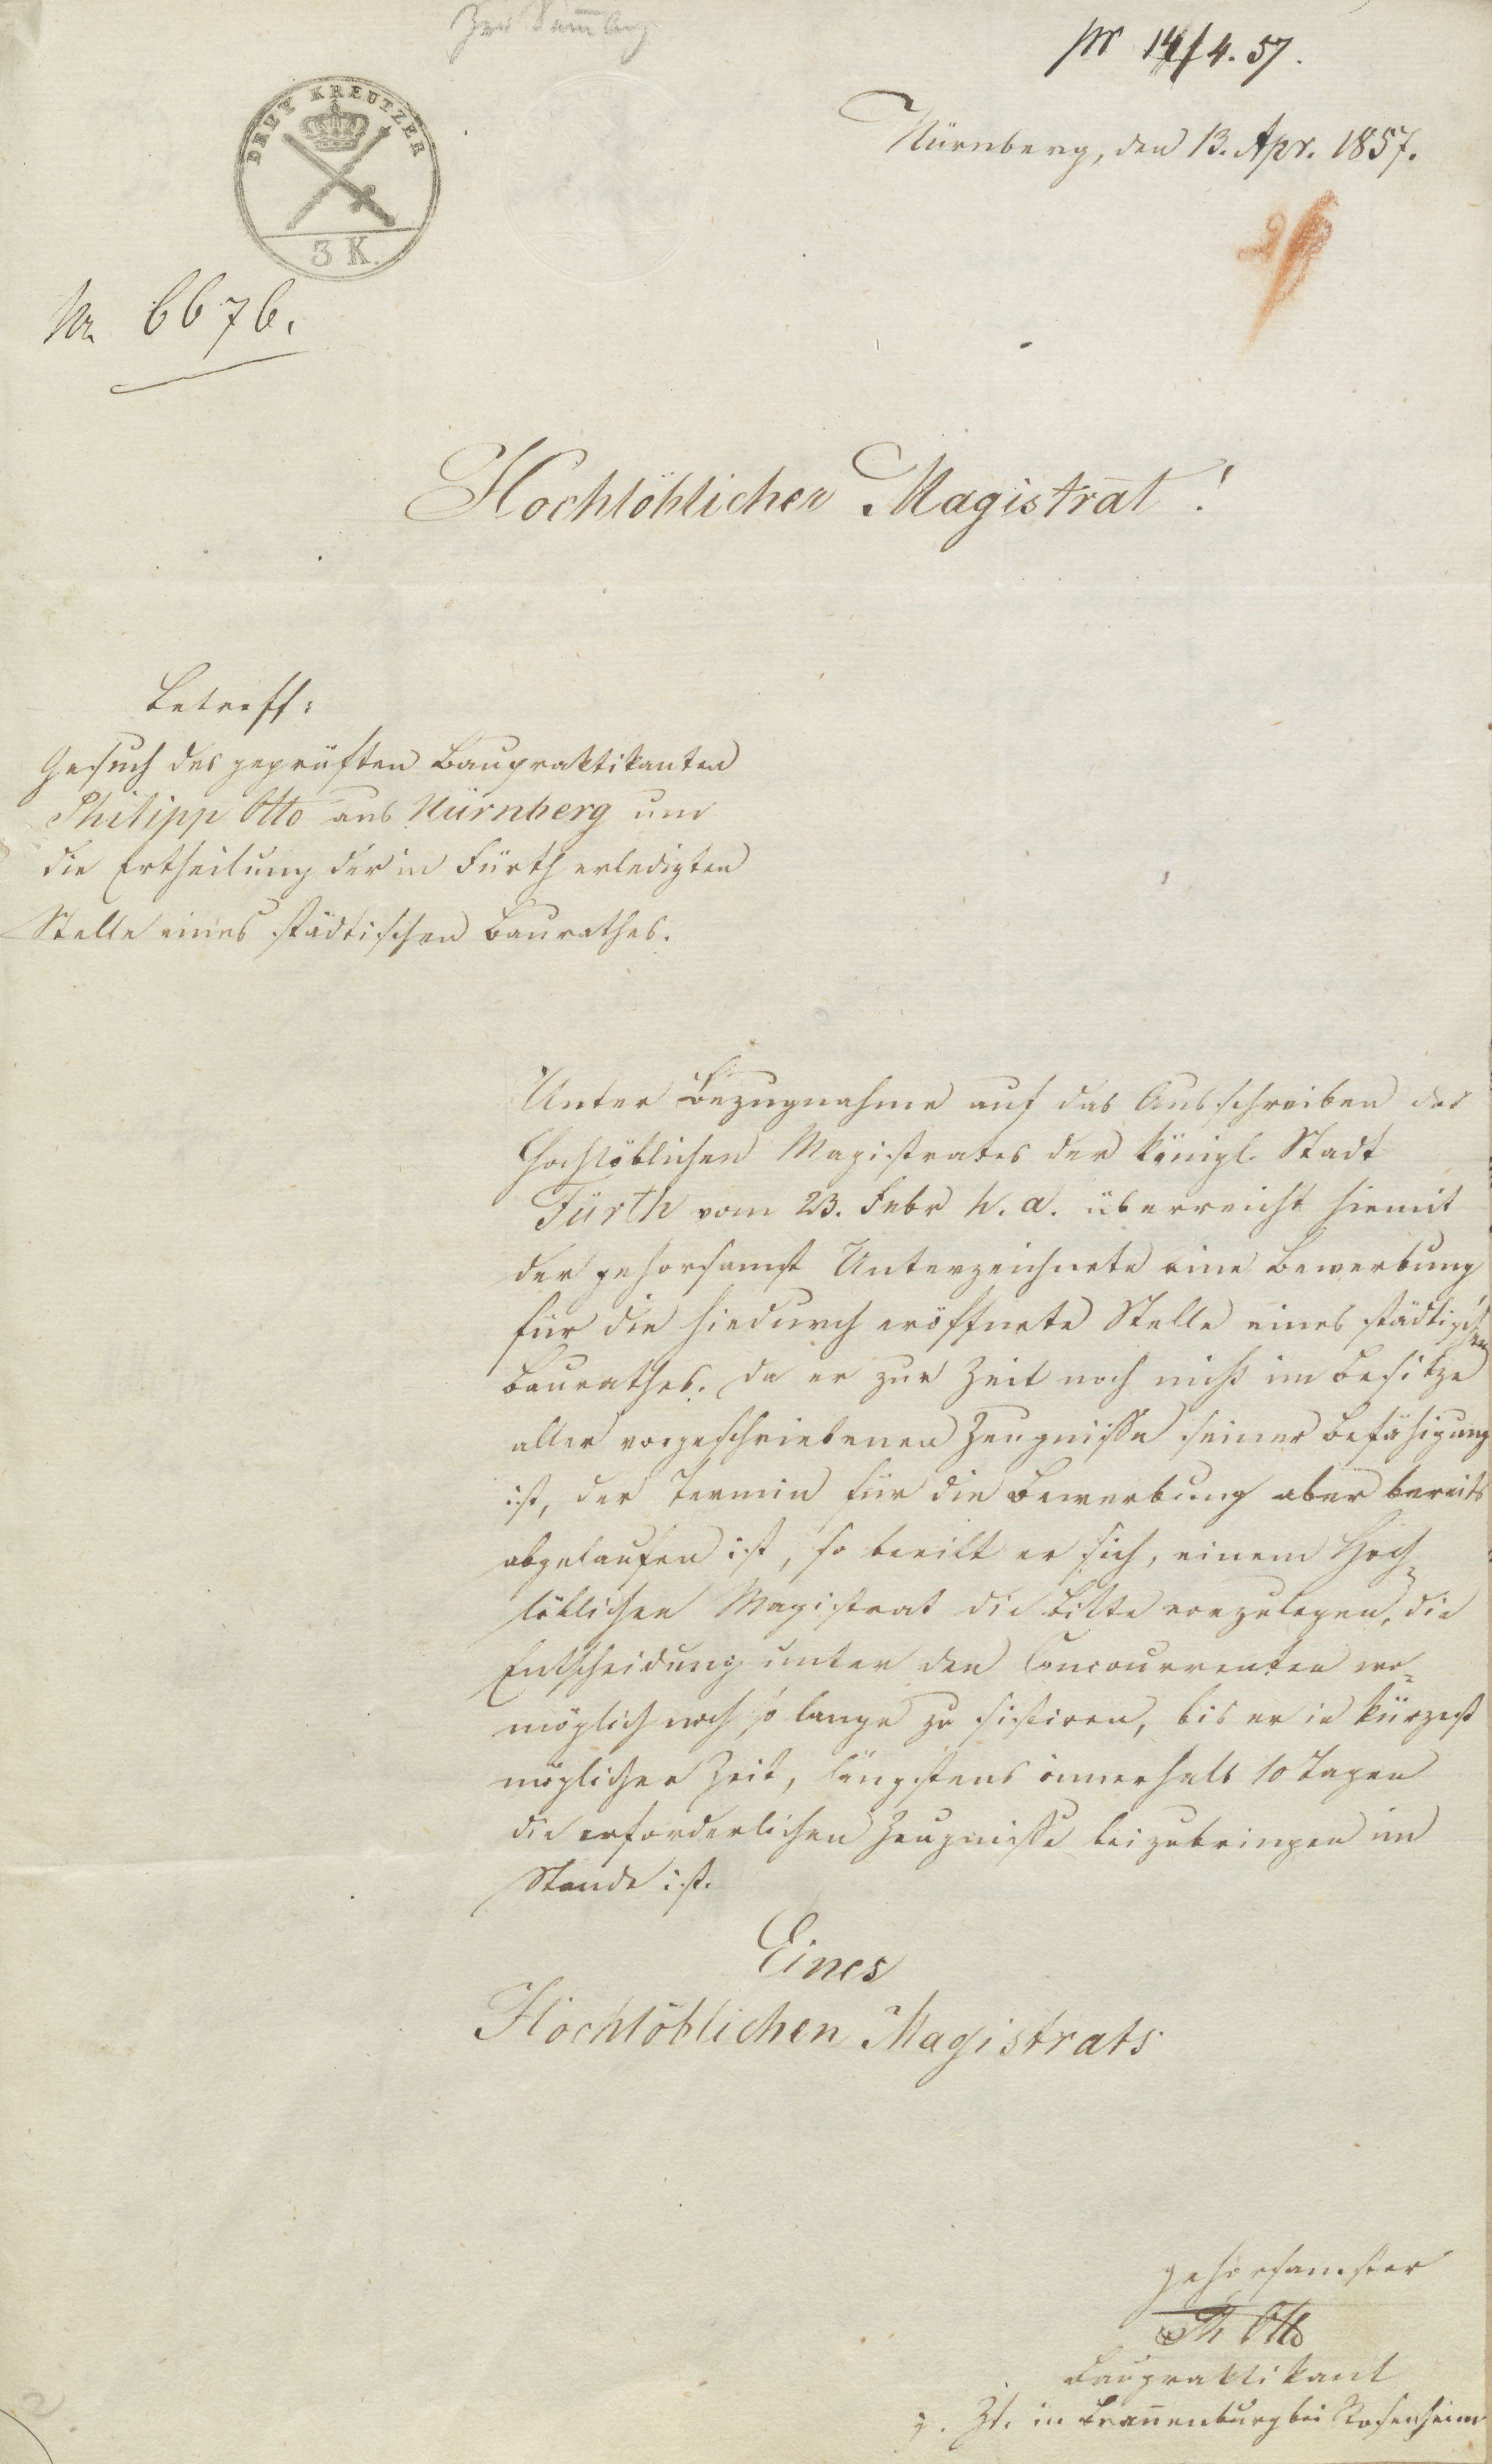 Zur Sammlg
pr 14/4. 57.
Nürnberg, den 13. Apr. 1857.
DREY KREUTZER
3 K.
Nr. 6676.
Hochlöblicher Magistrat!
Betreff:
Gesuch des geprüften Baupraktikanten
Philipp Otto aus Nürnberg um
die Ertheilung der in Fürth erledigten
Stelle eines städtischen Baurathes.
Unter Bezugnahme auf das Ausschreiben des
Hochlöblichen Magistrates der königl. Stadt
Fürth vom 23. Febr h. a. überreicht hiemit
der gehorsamst Unterzeichnete eine Bewerbung
für die hiedurch eröffnete Stelle eines städtischen
Baurathes. Da er zur Zeit noch nicht im Besitze
aller vorgeschriebenen Zeugnisse seiner Befähigung
ist, der Termin für die Bewerbung aber bereits
abgelaufen ist, so beeilt er sich, einem Hoch-
löblichen Magistrat die Bitte vorzulegen, die
Entscheidung unter den Concourrenten wo-
möglich noch so lange zu sistiren, bis er in kürzest
möglicher Zeit, längstens innerhalb 10 Tagen
die erforderlichen Zeugnisse beizubringen im
Stande ist.
Eines
Hochlöblichen Magistrats
gehorsamster
Ph Otto
Baupraktikant
z. Zt. in Brannenburg bei Rosenheim
2.